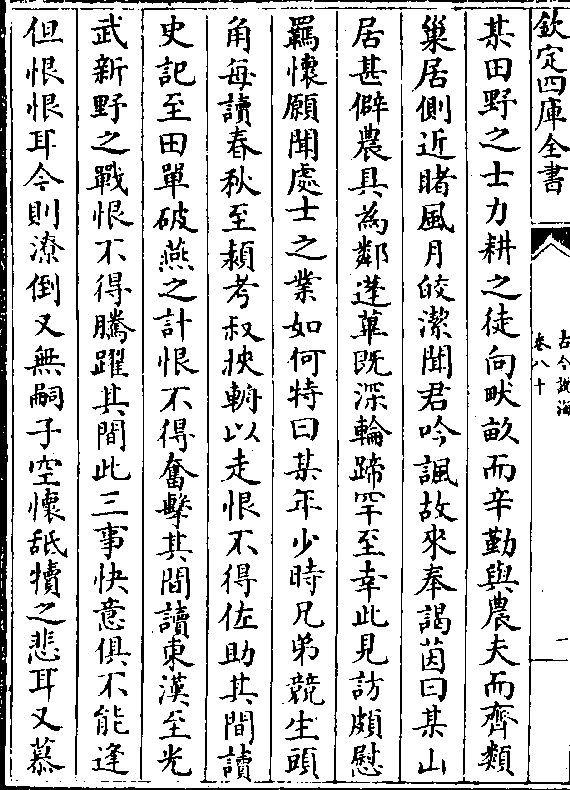 欽定四庫全書
古今說海
卷八十
一
某田野之士力耕之徒向畎畝而辛勤與農夫而齊類
巢居側近睹風月皎潔聞君吟諷故來奉謁茵曰某山
居甚僻農具為鄰蓬蓽既深輪蹄罕至幸此見訪頗慰
羈懷願聞處士之業如何特曰某年少時兄弟競生頭
角每讀春秋至潁考叔挾輈以走恨不得佐助其間讀
史記至田單破燕之計恨不得奮擊其間讀東漢至光
武新野之戰恨不得騰躍其間此三事快意俱不能逢
但恨恨耳今則潦倒又無嗣子空懷舐犢之悲耳又慕